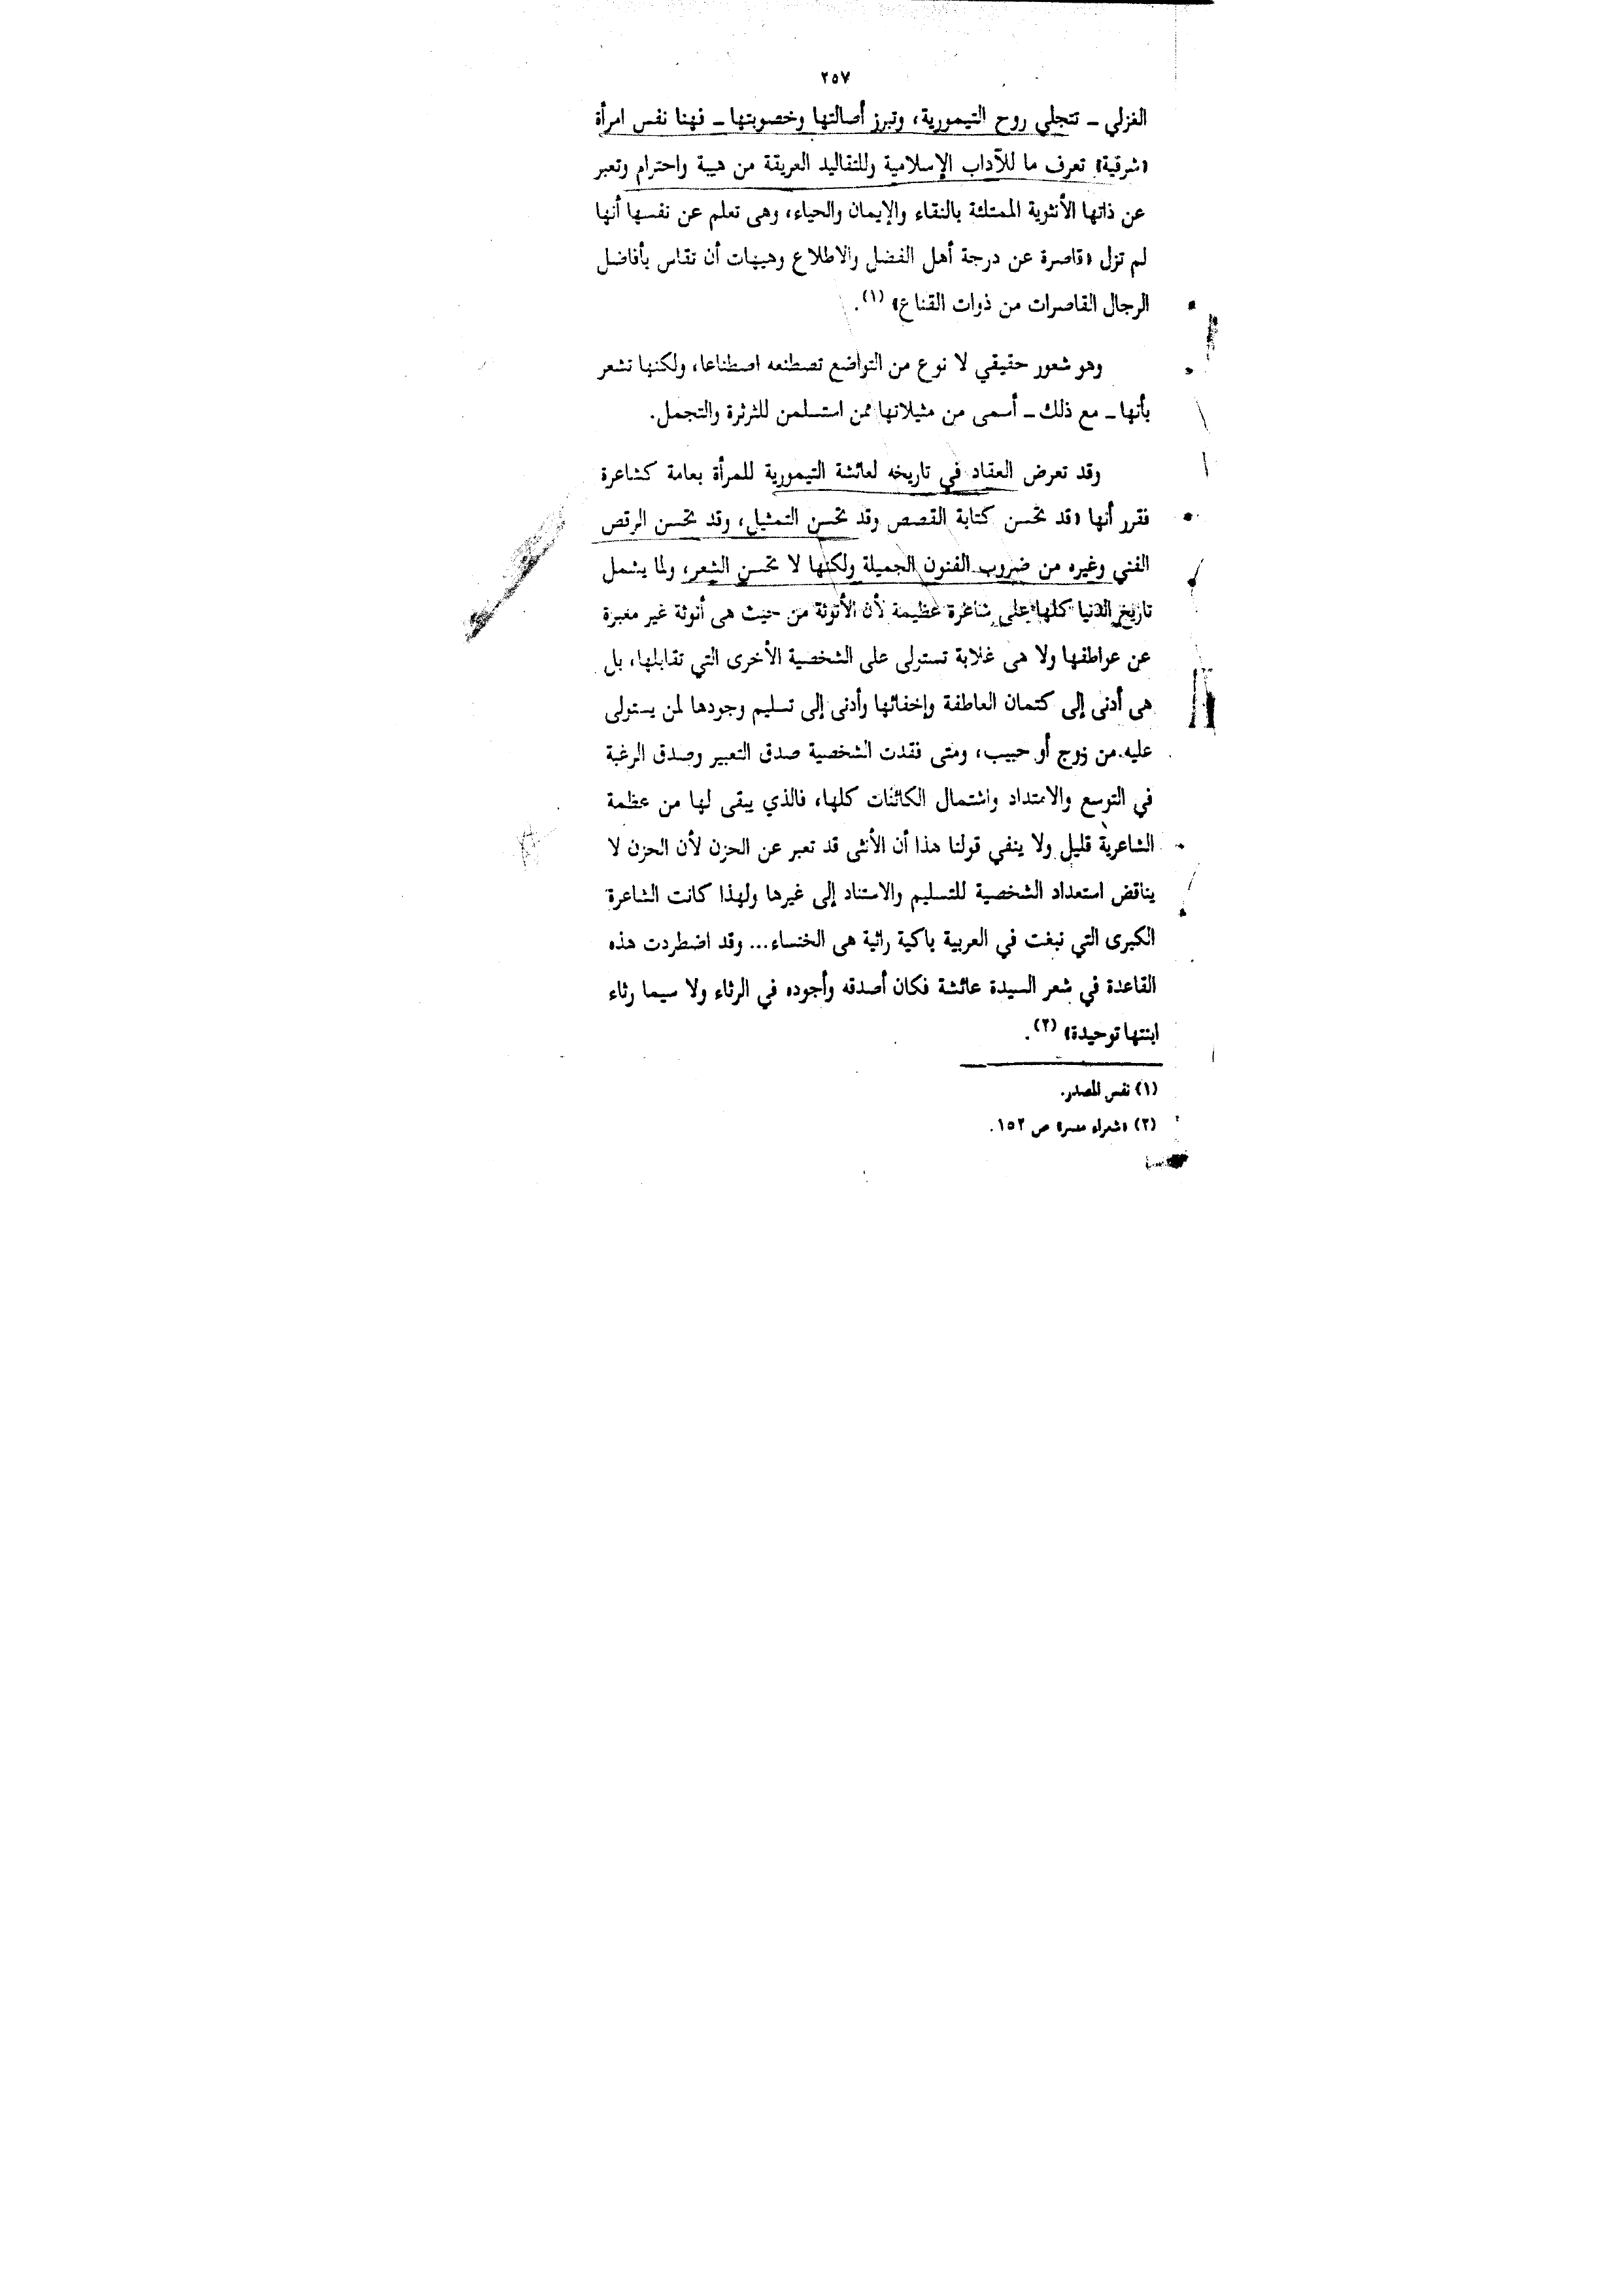 ٢٥٧
الغزلي – تتجلي روح التيمورية، وتبرز أصالتها وخصوبتها – فهنا نفس امرأة
«شرقية» تعرف ما للآداب الإسلامية وللتقاليد العريقة من هيبة واحترام وتعبر
عن ذاتها الأنثوية الممتلئة بالنقاء والإيمان والحياء، وهى تعلم عن نفسها أنها
لم تزل «قاصرة عن درجة أهل الفضل والاطلاع وهيهات أن تقاس بأفاضل
الرجال القاصرات من ذوات القناع» (١).
وهو شعور حقيقي لا نوع من التواضع تصطنعه اصطناعا، ولكنها تشعر
بأنها – مع ذلك – أسمى من مثيلاتها ممن استسلمن للثرثرة والتجمل.
وقد تعرض العقاد في تاريخه لعائشة التيمورية للمرأة بعامة كشاعرة
فقرر أنها «قد تحسن كتابة القصص وقد تحسن التمثيل، وقد تحسن الرقص
الفني وغيره من ضروب الفنون الجميلة ولكنها لا تحسن الشعر، ولما يشمل
تاريخ الدنيا كلها على شاعرة عظيمة لأن الأنوثة من حيث هى أنوثة غير معبرة
عن عواطفها ولا هى غلابة تستولى على الشخصية الأخرى التي تقابلها، بل
هى أدنى إلى كتمان العاطفة وإخفائها وأدنى إلى تسليم وجودها لمن يستولى
عليه من زوج أو حبيب، ومتى فقدت الشخصية صدق التعبير وصدق الرغبة
في التوسع والامتداد واشتمال الكائنات كلها، فالذي يبقى لها من عظمة
الشاعرية قليل ولا ينفي قولنا هذا أن الأنثى قد تعبر عن الحزن لأن الحزن لا
يناقض استعداد الشخصية للتسليم والاستناد إلى غيرها ولهذا كانت الشاعرة
الكبرى التي نبغت في العربية باكية راثية هى الخنساء... وقد اضطردت هذه
القاعدة في شعر السيدة عائشة فكان أصدقه وأجوده في الرثاء ولا سيما رثاء
ابنتها توحيدة» (٢).
(١) نفس المصدر.
(٢) «شعراء مصر» ص ١٥٢.